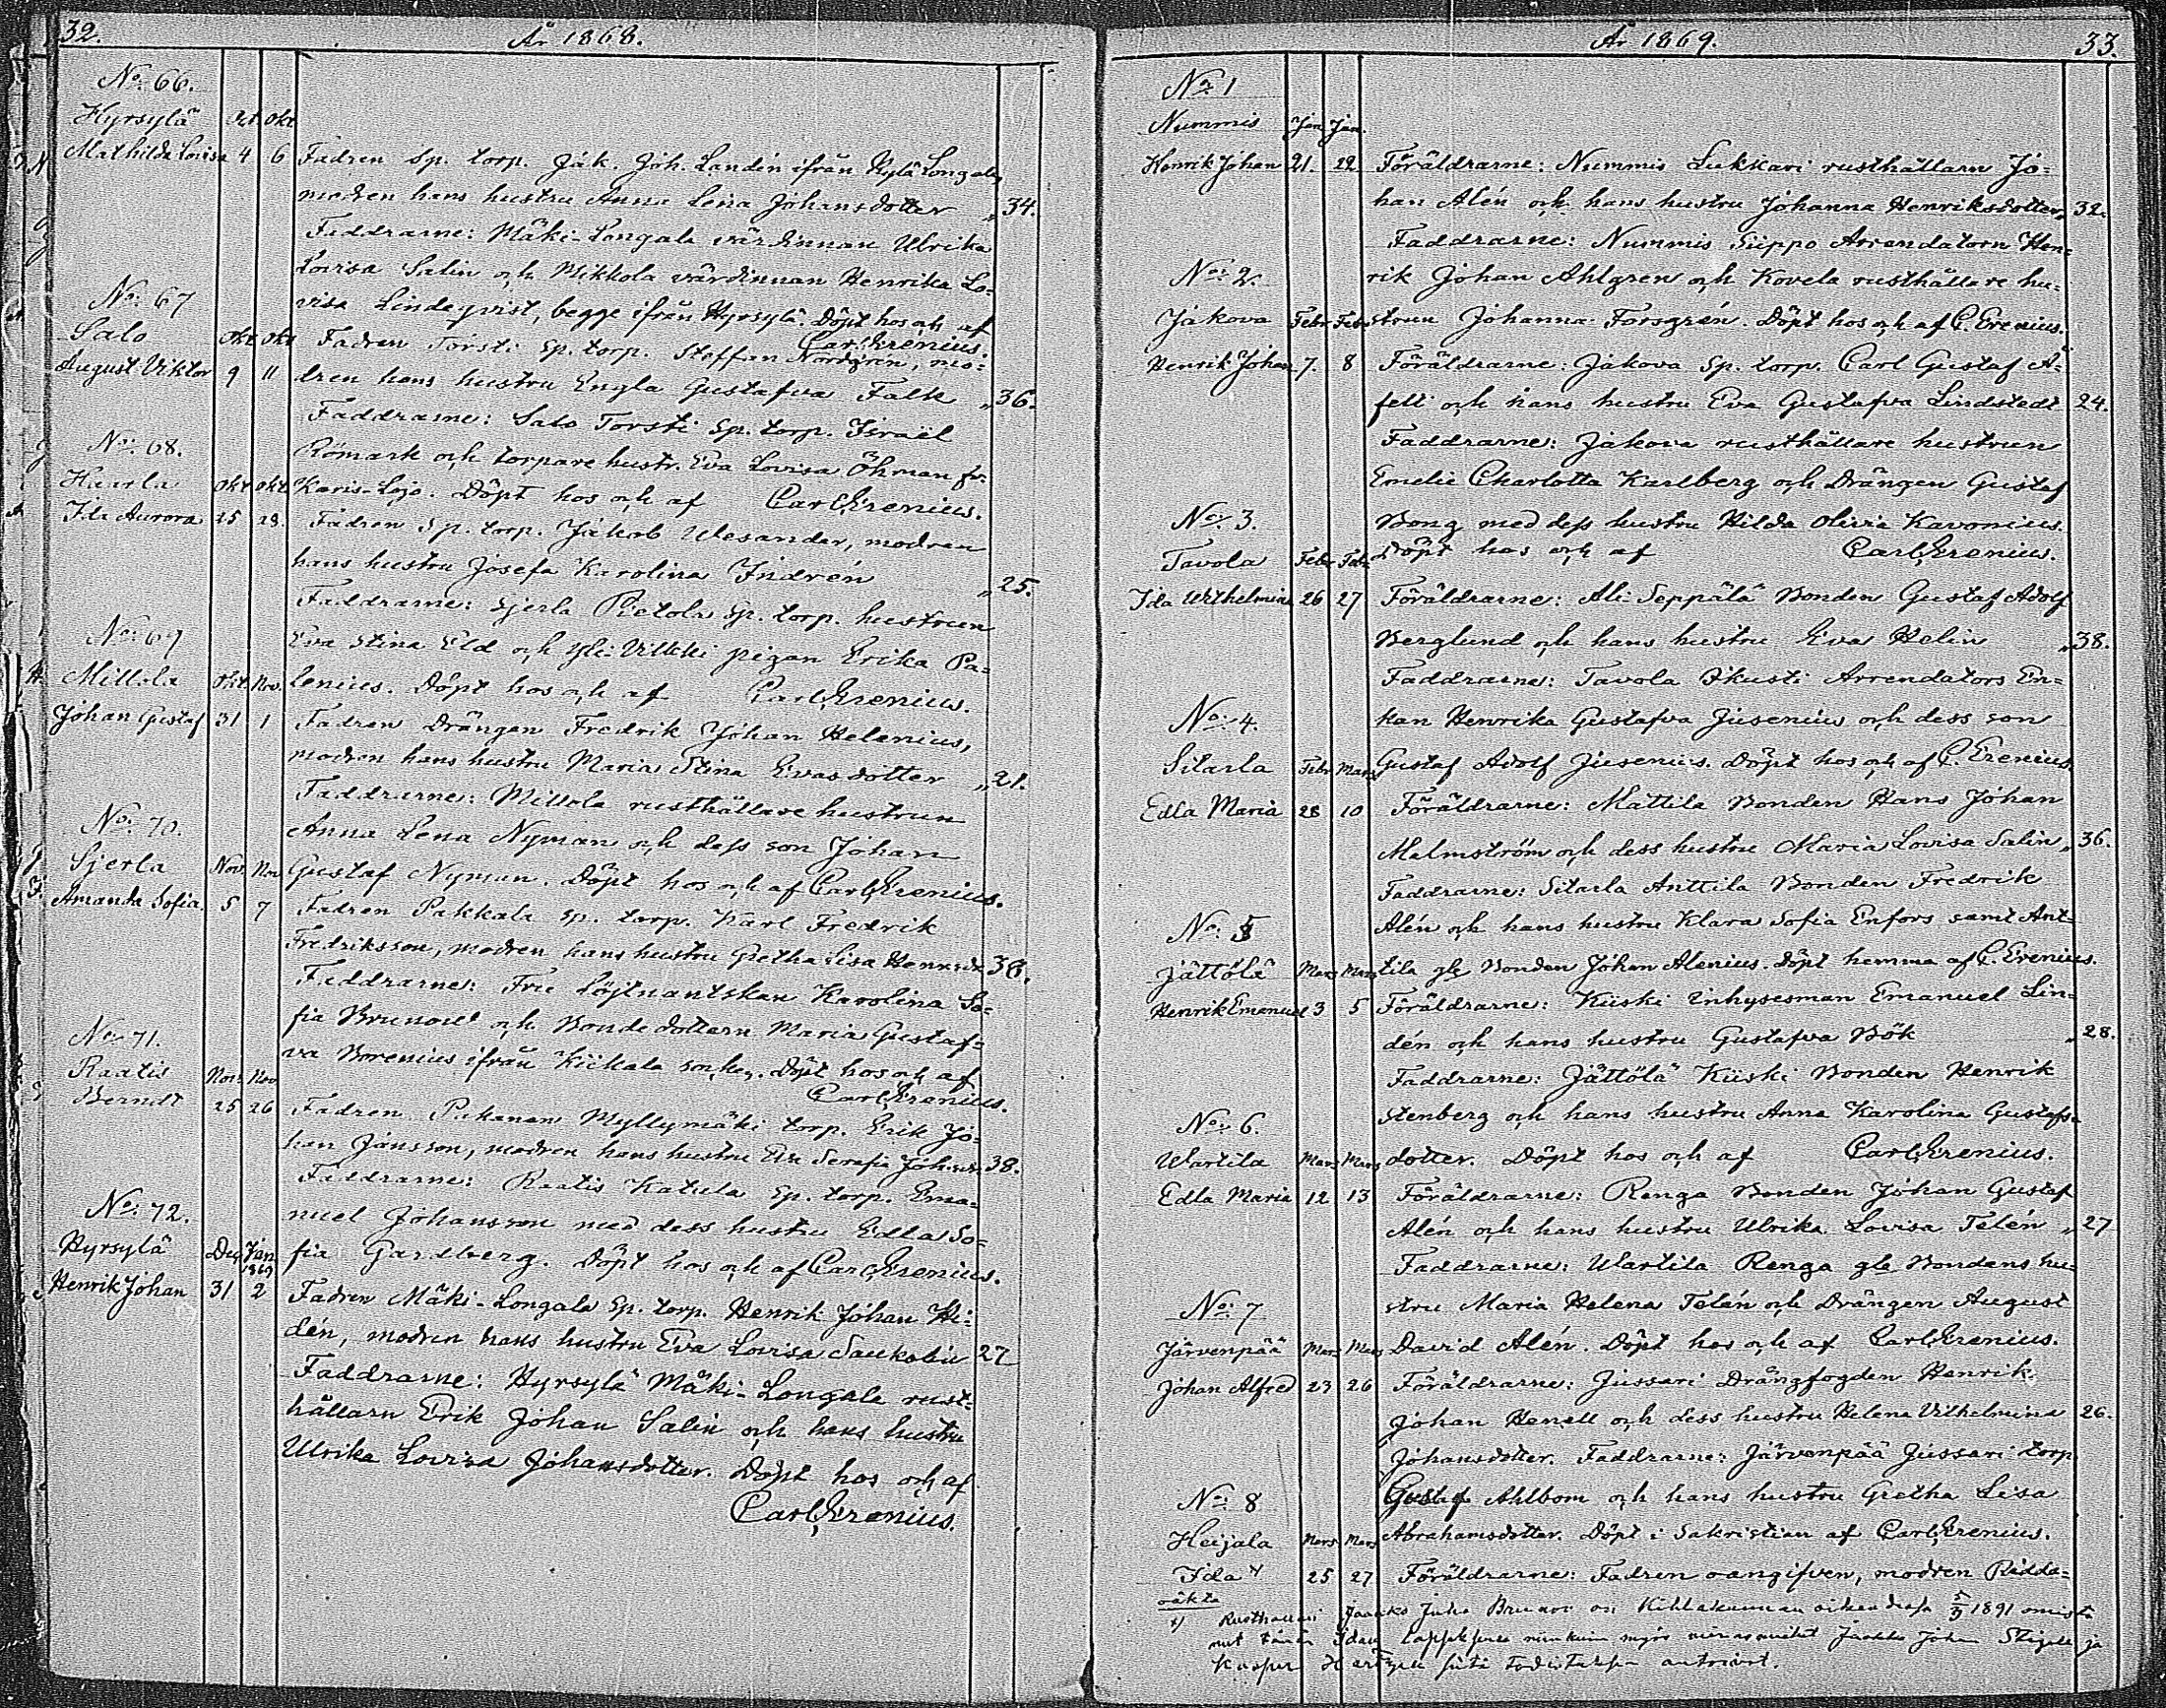 32.
År 1868.
No: 66.
Hyrsylä Okt Okt
Mathilda Lovisa 4 6 Fadren Sp. torp. Jak. Joh. Landén ifrån Kylä Longala,
modren hans hustru Anna Lena Johansdotter „ 34.
Faddrarne: Mäki-Longala värdinnan Ulrika
Lovisa Salin och Mikkola värdinnan Henrika Lo-
visa Lindeqvist, begge ifrån Hyrsylä. Döpt hos och af
Carl Erenius.
No: 67
Salo Okt Okt Fadren Torsti Sp. torp. Staffan Nordgrén, mo-
August Viktor 9 11 dren hans hustru Engla Gustafva Falk „ 36.
Faddrarne: Salo Torsti Sp. torp. Israël
No: 68.
Römark och torpare hustr. Eva Lovisa Öhman fr.
Haarla Okt Okt Karis-Lojo. Döpt hos och af Carl Erenius.
Ida Aurora 25 28. Fadren Sp. torp. Jakob Ulesander, modren
hans hustru Josefa Karolina Indrén „ 25.
Faddrarne: Sjerla Pietola Sp. torp. hustrun
No: 69
Eva Stina Eld och Yli-Vilkki pigan Erika Pa-
Millola Okt Nov. lenius. Döpt hos och af Carl Erenius.
Johan Gustaf 31 1 Fadren Drängen Fredrik Johan Helenius,
modren hans hustru Maria Stina Evasdotter „ 21.
Faddrarne: Millola rusthållare hustrun
No: 70.
Anna Lena Nyman och dess son Johan
Sjerla Nov. Nov Gustaf Nyman. Döpt hos och af Carl Erenius.
Amanda Sofia. 5 7 Fadren Pakkala Sp. torp. Karl Fredrik
Fredriksson, modren hans hustru Gretha Lisa Henr.dr 38.
Faddrarne: Fru Löjtnantskan Karolina So-
fia Brunow och Bonde dottern Maria Gustaf-
No: 71.
va Borenius ifrån Kiikala sock. Döpt hos och af
Carl Erenius.
Raatis Nov. Nov
Berndt 25 26 Fadren Pakanan Myllymäki torp. Erik Jo-
han Jansson, modren hans hustru Eva Serafia Joh.dr. 38.
Faddrarne: Raatis Katula Sp. torp. Ema-
No: 72.
nuel Johansson med dess hustru Edla So-
Hyrsylä Dec Jan 1869 fia Gardberg. Döpt hos och af Carl Erenius.
Henrik Johan 31 2 Fadren Mäki-Longala Sp. torp. Henrik Johan Hi-
dén, modren hans hustru Eva Lovisa Saukolin 27
Faddrarne: Hyrsylä Mäki-Longala rust-
hållarn Erik Johan Salin och hans hustru
Ulrika Lovisa Johansdotter. Döpt hos och af
Carl Erenius.
År 1869.
33.
No: 1
Nummis Jan Jan.
Henrik Johan 21. 22 Föräldrarne: Nummis Lukkari rusthållarn Jo-
han Alén och hans hustru Johanna Henriksdotter „ 32.
Faddrarne: Nummis Siippo Arrendatorn Hen-
No: 2.
rik Johan Ahlgren och Kovela rusthållare hu-
Jakova Febr Febr strun Johanna Forsgrén. Döpt hos och af C. Erenius.
Henrik Johan 7. 8 Föräldrarne: Jakova Sp. torp. Carl Gustaf A-
felt och hans hustru Eva Gustafva Lindstedt 24.
Faddrarne: Jakova rusthållare hustrun
Emelie Charlotta Karlberg och Drängen Gustaf
No: 3.
Bong med dess hustru Hilda Olivia Karonius.
Tavola Febr Febr. Döpt hos och af Carl Erenius.
Ida Wilhelmina 26 27 Föräldrarne: Ali-Seppälä Bonden Gustaf Adolf
Berglund och hans hustru Eva Helin „ 38.
Faddrarne: Tavola Ikusti Arrendators En-
No: 4.
kan Henrika Gustafva Jusenius och dess son
Sitarla Febr Mars Gustaf Adolf Jusenius. Döpt hos och af C. Erenius.
Edla Maria 28 10 Föräldrarne: Mattila Bonden Hans Johan
Malmström och dess hustru Maria Lovisa Salin „ 36.
Faddrarne: Sitarla Anttila Bonden Fredrik
No: 5
Alén och hans hustru Klara Sofia Enfors samt Ant-
Jättölä Mars Mars tila gle Bonden Johan Alenius. Döpt hemma af C. Erenius.
Henrik Emanuel 3 5 Föräldrarne: Kiiski Inhysesman Emanuel Lin-
dén och hans hustru Gustafva Bök „ 28.
Faddrarne: Jättölä Kiiski Bonden Henrik
No: 6.
Stenberg och hans hustru Anna Karolina Gustafs-
Wartila Mars Mars dotter. Döpt hos och af Carl Erenius.
Edla Maria 12 13 Föräldrarne: Renga Bonden Johan Gustaf
Alén och hans hustru Ulrika Lovisa Telén „ 27
Faddrarne: Wartila Renga gle Bondens hu-
No: 7
stru Maria Helena Telén och Drängen August
Järvenpää Mars Mars David Alén. Döpt hos och af Carl Erenius.
Johan Alfred 23 26 Föräldrarne: Jussari Drängfogden Henrik
Johan Henell och dess hustru Helena Vilhelmina 26.
Johansdotter. Faddrarne: Järvenpää Jussari torp.
No: 8
Gustaf Ahlbom och hans hustru Gretha Lisa
Heijala Mars Mars Abrahamsdotter. Döpt i Sakristian af Carl Erenius.
Ida x) 25 27 Föräldrarne: Fadren oangifven, modren Ridda-
oäkta
x) Rusthollari Jaakko Juho Brunow on Kihlakunnan oikeudessa 5/3 1891 omista
nut tämän Idan niinkuin myös Jaakko Johan ja
Kasper